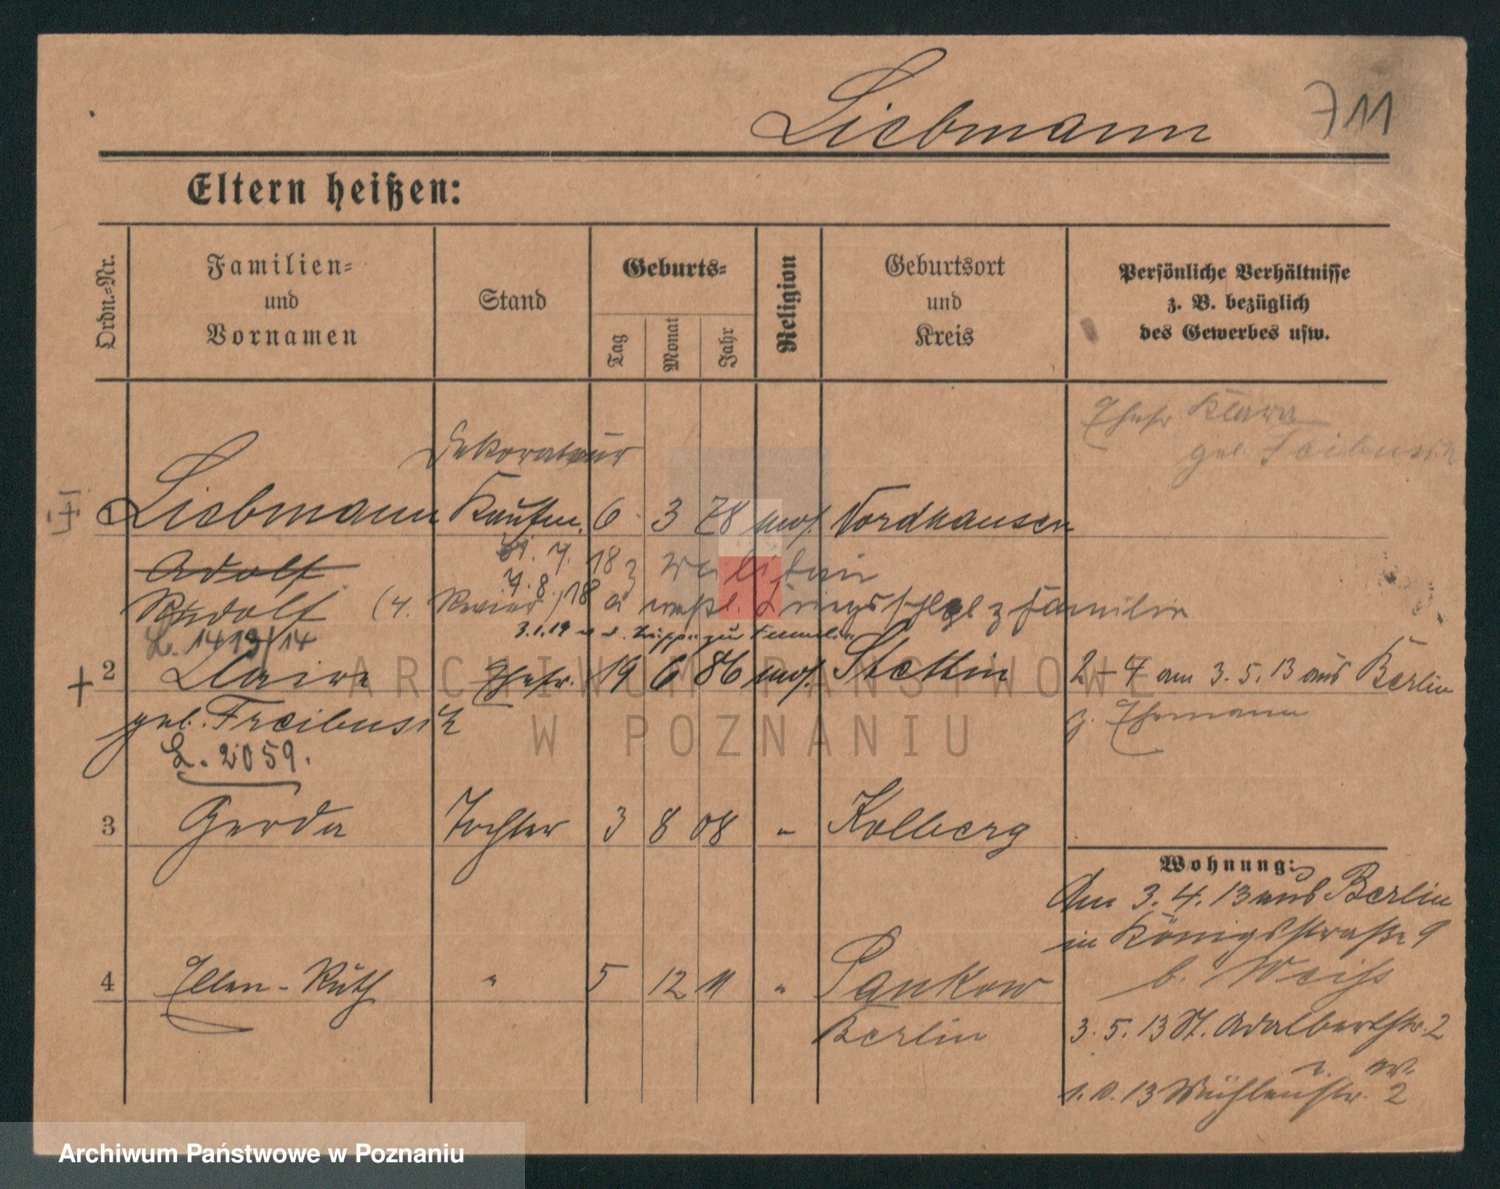 Liebmann
711
Eltern heißen:
Ordn.-Nr.
Familien-
und
Vornamen
Stand
Geburts-
Tag
Monat
Jahr
Religion
Geburtsort
und
Kreis
Persönliche Verhältnisse
z. B. bezüglich
des Gewerbes usw.
Ehefr Klara
geb.
Dekorateur
1 Liebmann Kaufm. 6 3 78 mos. Nordhausen
Adolf
7. 18 z
Rudolf (4. Revier) 7.8.18 z Familie
L. 1413/14
3.1.19 zur Familie
2 Claire Ehefr. 19 6 86 mos. Stettin
2-4 am 3.5.13 aus Berlin
z. Ehemann
geb. Freibusch
L. 2059.
3 Gerda Tochter 3 8 08 " Kolberg
Wohnung:
Am 3.4.13 aus Berlin
in Königsstraße 9
b. Weiss
4 Ellen-Ruth " 5 12 11 " Pankow
Berlin
3.5.13 St. Adalbertstr. 2
1.10.13 Mühlenstr. 2
ARCHIWUM PAŃSTWOWE
W POZNANIU
Archiwum Państwowe w Poznaniu